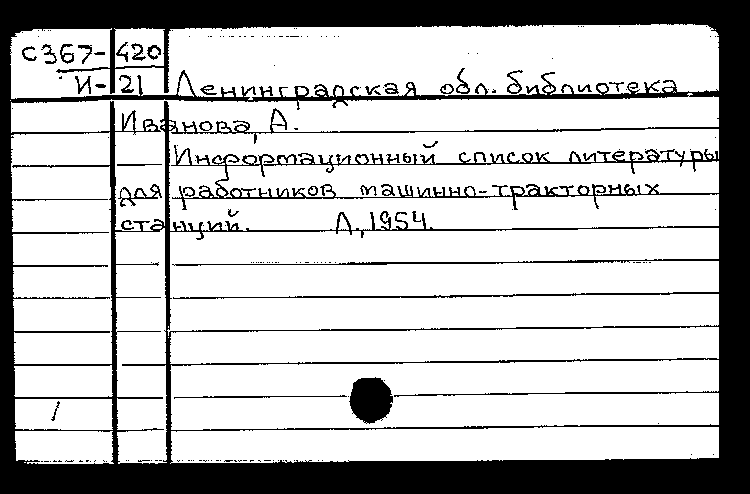 С367- 420
И- 21 Ленинградская обл. библиотека
Иванова, А.
Информационный список литературы
для работников машинно-тракторных
станций. Л., 1954.
/